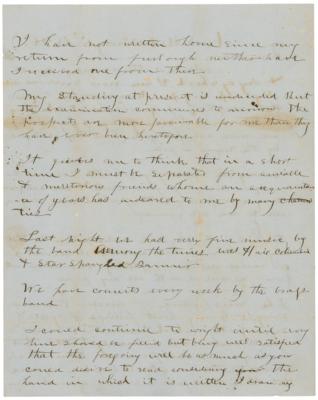 I have not written home since my
return from furlough neither have
I received one from them.
My standing at present is undecided but
the examination commences to morrow the
prospects are more favourable for me than they
have ever been heretofore.
It grieves me to think that in a short
time I must be separated from amiable
& meritorious friends whome an acquaintan-
ce of years has indeared to me by many
ties
Last night we had very fine music by
the band Among the tunes was Hail Columbia
& Star Spangled Banner
We have concerts every week by the brass
band
I could continue to wright until
time should be but being well satisfied
that the foregoing will be as much as you
could desire to read considering the
hand in which it is written I draw my